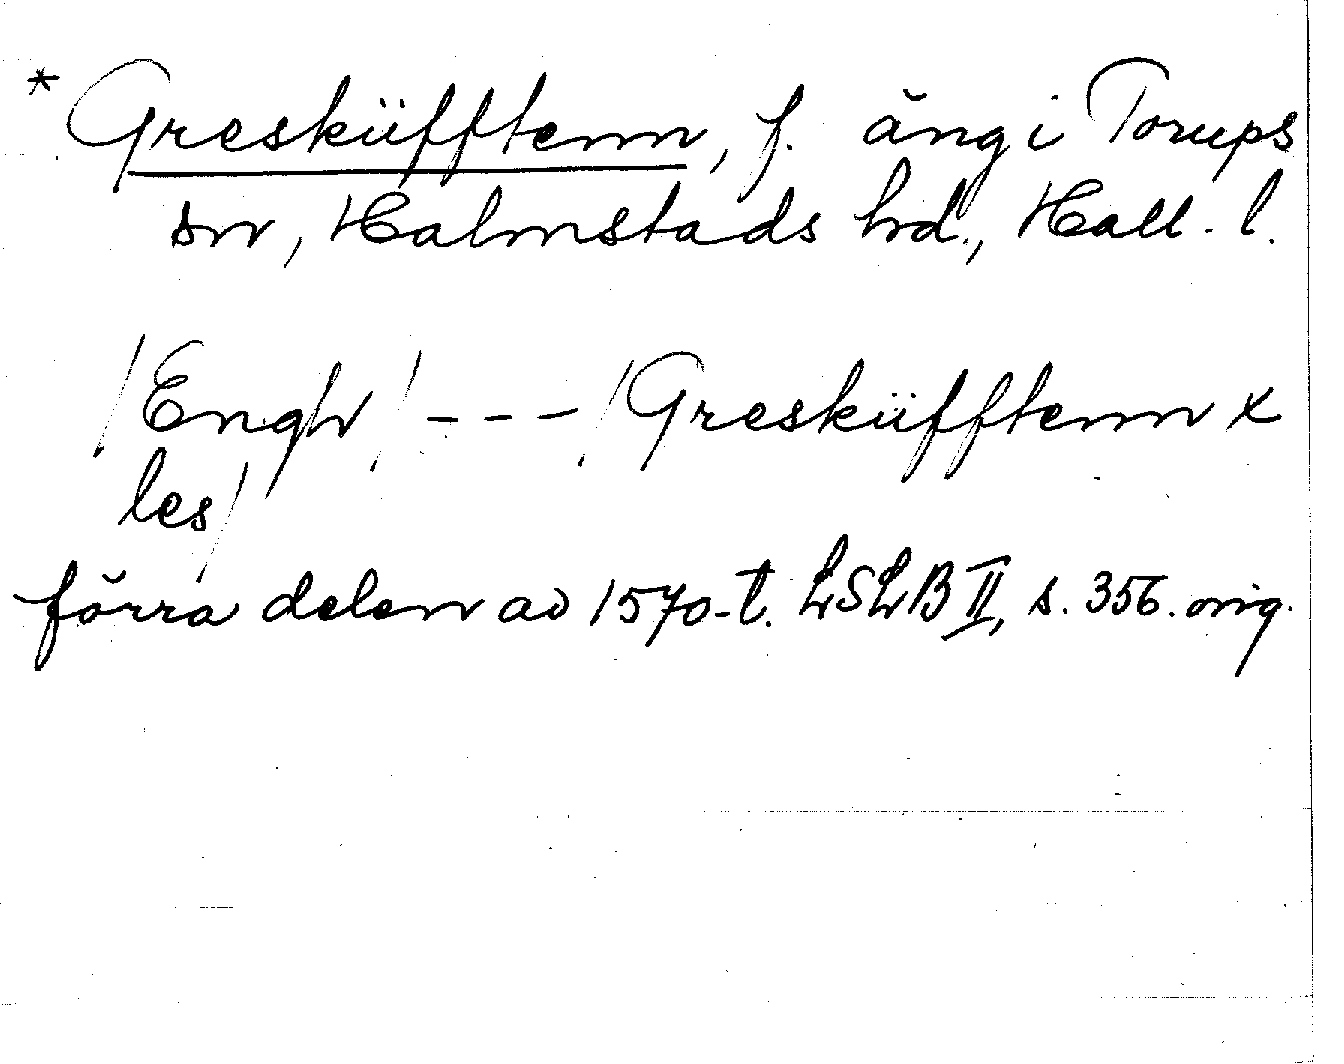 * Gresküfftenn, f. äng i Torups
sn, Halmstads hrd., Hall. l.
/Engh/ --- /Gresküfftenn x
les/
förra delen av 1570-t. LSLB II, s. 356. orig.